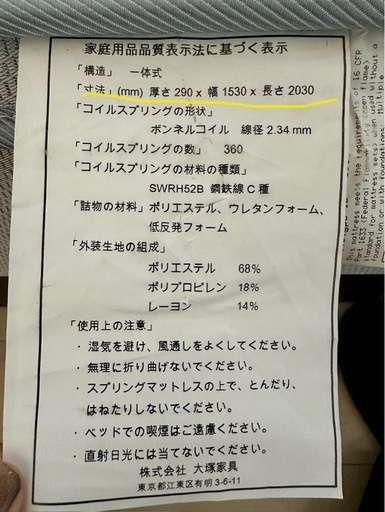 家庭用品品質表示法に基づく表示
「構造」 一体式
「寸法」(mm) 厚さ290 x 幅1530 x 長さ2030
「コイルスプリングの形状」
ボンネルコイル 線径2.34 mm
「コイルスプリングの数」 360
「コイルスプリングの材料の種類」
SWRH52B 鋼鉄線C種
「詰物の材料」ポリエステル、ウレタンフォーム、
低反発フォーム
「外装生地の組成」
ポリエステル 68%
ポリプロピレン 18%
レーヨン 14%
「使用上の注意」
・湿気を避け、風通しをよくしてください。
・無理に折り曲げないでください。
・スプリングマットレスの上で、とんだり、
はねたりしないでください。
・ベッドでの喫煙はご遠慮ください。
・直射日光には当てないでください。
株式会社 大塚家具
東京都江東区有明3-6-11
This mattress meets the requirements of 16 CFR
Part 1633 (Federal Flammability (open flame)
standard for mattress sets) when used without a
foundation or with foundation